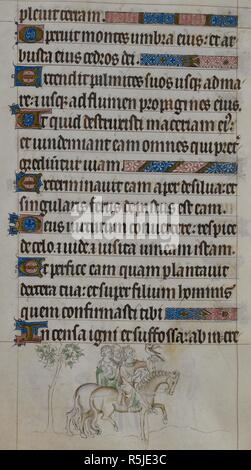 pleuit terram.
Operuit montes umbra eius: et ar
busta eius cedros dei.
Extendit palmites suos usq; ad ma
re: et usq; ad flumen propagines eius.
Ut quid destruxisti maceriam ei9:
et uindemiant eam omnes qui pre
grediuntur uiam
Exterminauit eam aper de silua: et
singularis ferus depastus est eam.
Deus uirtutum conuertere: respice
de celo et uide et uisita uineam istam.
Et perfice eam quam plantauit
dextera tua: et super filium hominis
quem confirmasti tibi.
Incensa igni et suffossa: ab incre
alamy stock photo
R5JE3C
www.alamy.com